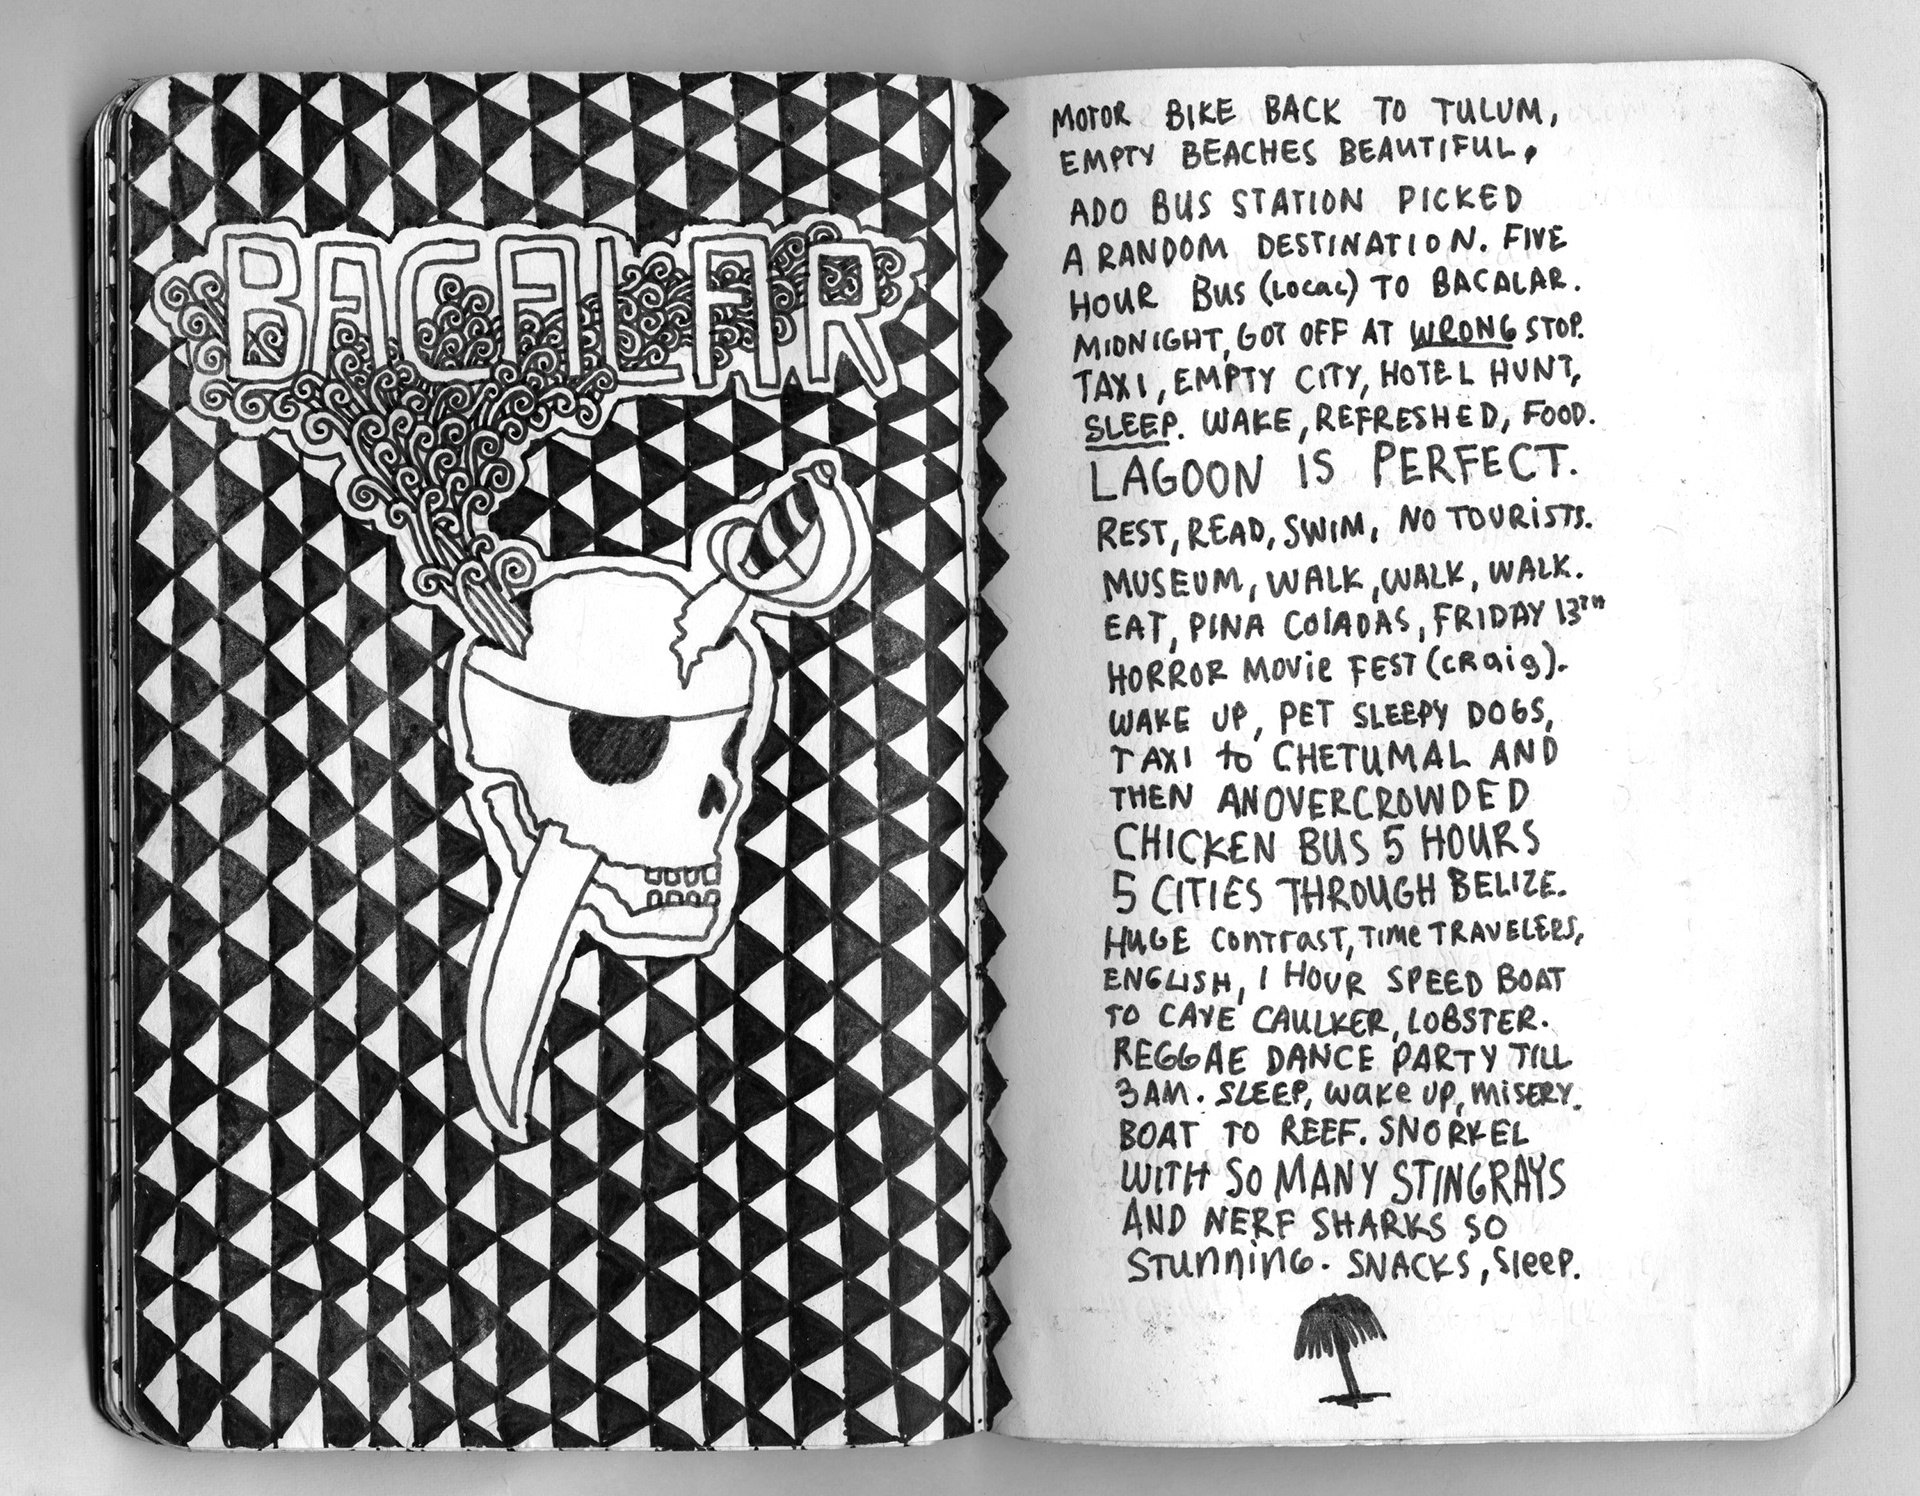 BACALAR
MOTOR BIKE BACK TO TULUM,
EMPTY BEACHES BEAUTIFUL,
ADO BUS STATION PICKED
A RANDOM DESTINATION. FIVE
HOUR BUS (LOCAL) TO BACALAR.
MIDNIGHT, GOT OFF AT WRONG STOP.
TAXI, EMPTY CITY, HOTEL HUNT,
SLEEP. WAKE, REFRESHED, FOOD.
LAGOON IS PERFECT.
REST, READ, SWIM, NO TOURISTS.
MUSEUM, WALK, WALK, WALK.
EAT, PINA COLADAS, FRIDAY 13TH
HORROR MOVIE FEST (CRAIG).
WAKE UP, PET SLEEPY DOGS,
TAXI to CHETUMAL AND
THEN AN OVERCROWDED
CHICKEN BUS 5 HOURS
5 CITIES THROUGH BELIZE.
HUGE CONTRAST, TIME TRAVELERS,
ENGLISH, 1 HOUR SPEED BOAT
TO CAYE CAULKER, LOBSTER.
REGGAE DANCE PARTY TILL
3AM. SLEEP, WAKE UP, MISERY.
BOAT TO REEF. SNORKEL
WITH SO MANY STINGRAYS
AND NERF SHARKS SO
STUNNING. SNACKS, SLEEP.